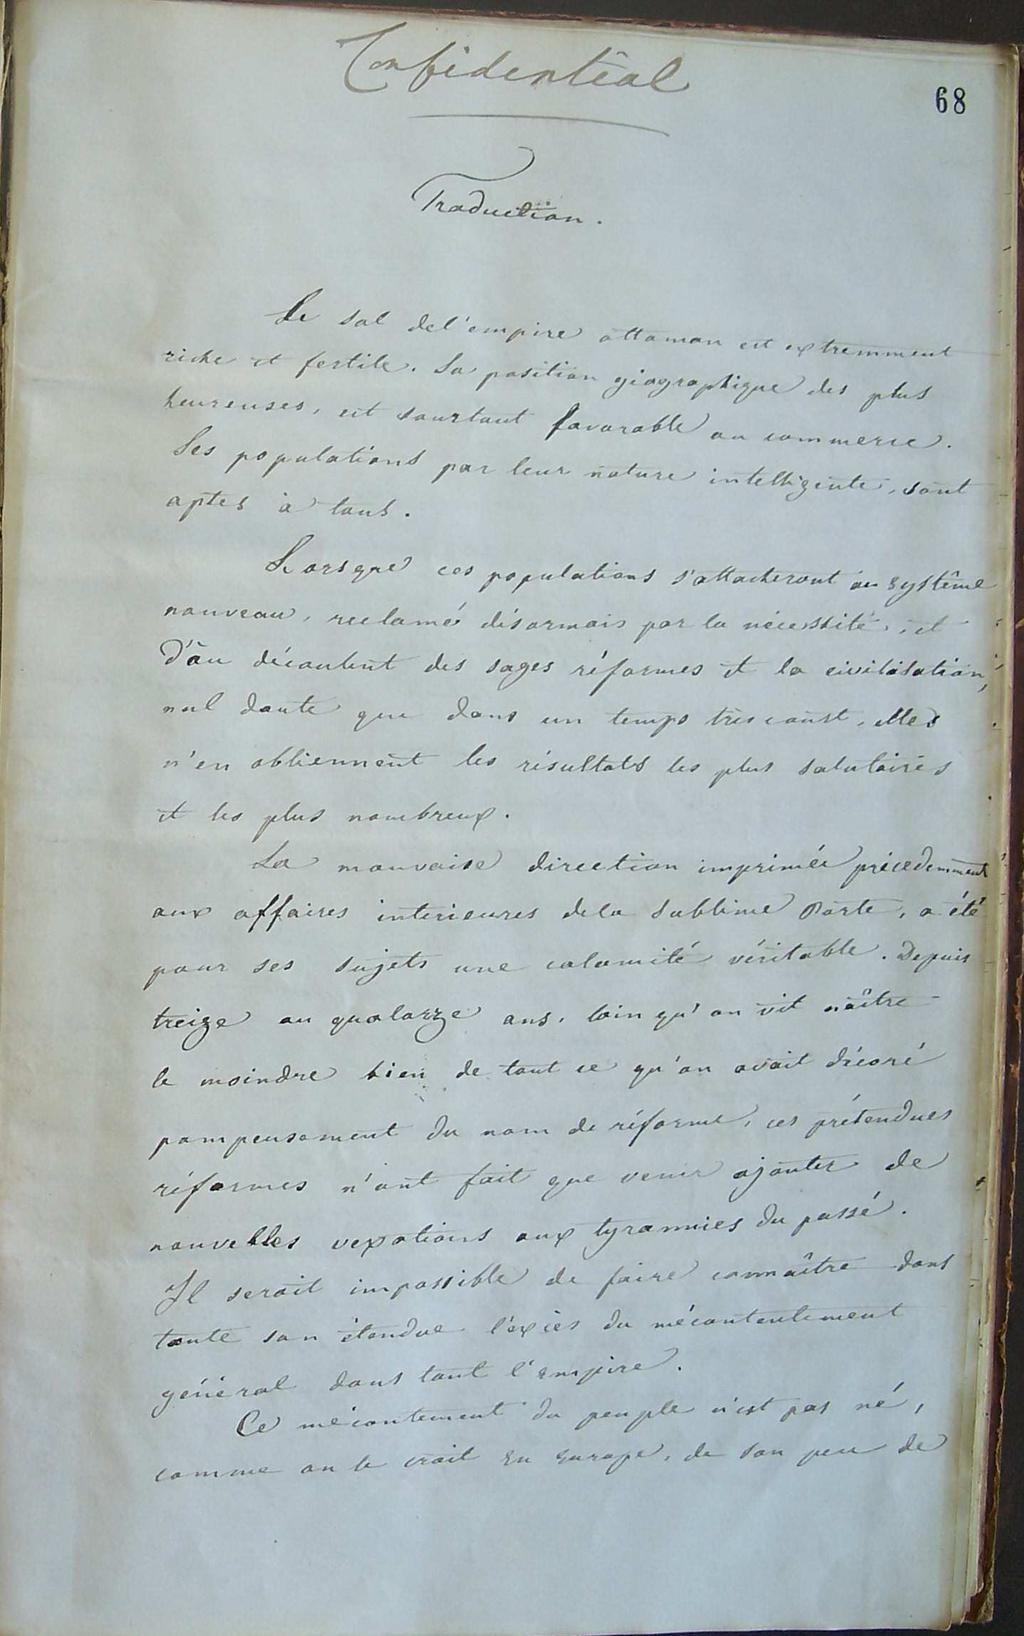 Confidential
68
Traduction.
Le sol de l'empire ottoman est extremment
riche et fertile. Sa position géographique des plus
heureuses, est sourtout favorable au commerce.
Ses populations par leur nature intelligente, sont
aptes à tout.
Lorsque ces populations s'attacheront au système
nouveau, reclamé désormais par la nécessité, et
d'où découlent des sages réformes et la civilisation,
nul doute que dans un temps très court, elles
n'en obtiennent les résultats les plus salutaires
et les plus nombreux.
La mauvaise direction imprimée précedemment
aux affaires interieures de la Sublime Porte, a été
pour ses sujets une calamité véritable. Depuis
treize ou quatorze ans, loin qu'on vit naître
le moindre bien de tout ce qu'on avait décoré
pompeusement du nom de réforme, ces prétendues
réformes n'ont fait que venir ajouter de
nouvelles vexations aux tyrannies du passé.
Il serait impossible de faire connaître dans
toute son étendue l'excès du mécontentement
général dans tout l'empire.
Ce mécontement du peuple n'est pas né,
comme on le croit en Europe, de son peu de